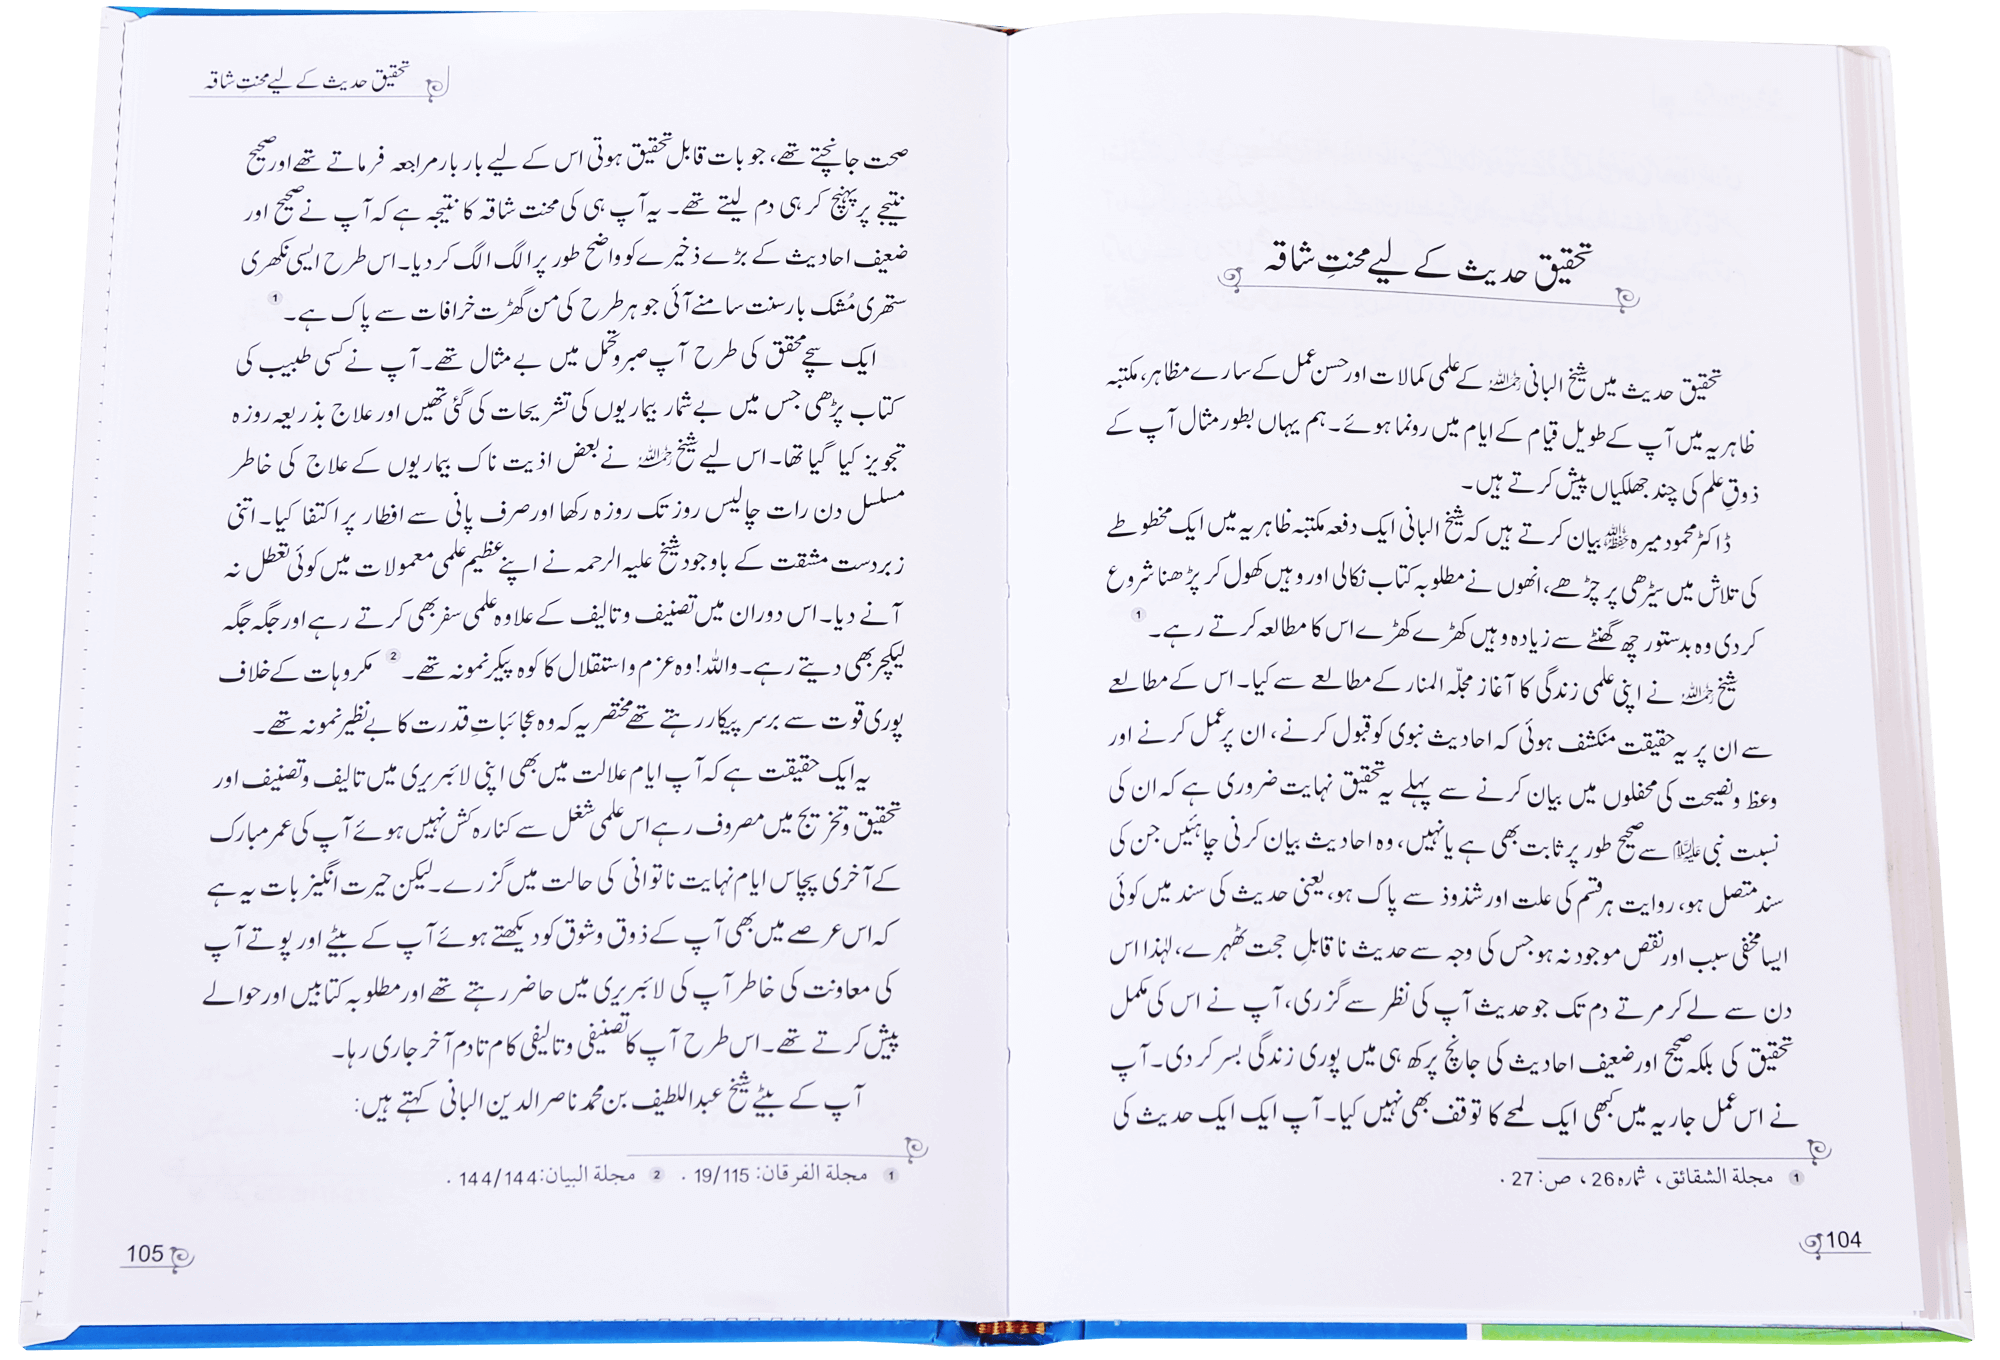 تحقیق حدیث کے لیے محنتِ شاقہ
تحقیق حدیث میں شیخ البانی رحمہ اللہ کے علمی کمالات اور حسن عمل کے سارے مظاہر، مکتبہ
ظاہریہ میں آپ کے طویل قیام کے ایام میں رونما ہوئے۔ ہم یہاں بطور مثال آپ کے
ذوقِ علم کی چند جھلکیاں پیش کرتے ہیں۔
ڈاکٹر محمود میرہ حفظہ اللہ بیان کرتے ہیں کہ شیخ البانی ایک دفعہ مکتبہ ظاہریہ میں ایک مخطوطے
کی تلاش میں سیڑھی پر چڑھے، انھوں نے مطلوبہ کتاب نکالی اور وہیں کھول کر پڑھنا شروع
کر دی وہ بدستور چھ گھنٹے سے زیادہ وہیں کھڑے کھڑے اس کا مطالعہ کرتے رہے۔ 1
شیخ رحمہ اللہ نے اپنی علمی زندگی کا آغاز مجلّہ المنار کے مطالعے سے کیا۔ اس کے مطالعے
سے ان پر یہ حقیقت منکشف ہوئی کہ احادیث نبوی کو قبول کرنے، ان پر عمل کرنے اور
وعظ و نصیحت کی محفلوں میں بیان کرنے سے پہلے یہ تحقیق نہایت ضروری ہے کہ ان کی
نسبت نبی ﷺ سے صحیح طور پر ثابت بھی ہے یا نہیں، وہ احادیث بیان کرنی چاہئیں جن کی
سند متصل ہو، روایت ہر قسم کی علت اور شذوذ سے پاک ہو، یعنی حدیث کی سند میں کوئی
ایسا مخفی سبب اور نقص موجود نہ ہو جس کی وجہ سے حدیث نا قابلِ حجت ٹھہرے، لہٰذا اس
دن سے لے کر مرتے دم تک جو حدیث آپ کی نظر سے گزری، آپ نے اس کی مکمل
تحقیق کی بلکہ صحیح اور ضعیف احادیث کی جانچ پرکھ ہی میں پوری زندگی بسر کر دی۔ آپ
نے اس عمل جاریہ میں کبھی ایک لمحے کا توقف بھی نہیں کیا۔ آپ ایک ایک حدیث کی
1 مجلة الشقائق، شمارہ 26، ص: 27.
104
تحقیق حدیث کے لیے محنتِ شاقہ
صحت جانچتے تھے، جو بات قابل تحقیق ہوتی اس کے لیے بار بار مراجعہ فرماتے تھے اور صحیح
نتیجے پر پہنچ کر ہی دم لیتے تھے۔ یہ آپ ہی کی محنت شاقہ کا نتیجہ ہے کہ آپ نے صحیح اور
ضعیف احادیث کے بڑے ذخیرے کو واضح طور پر الگ الگ کر دیا۔ اس طرح ایسی نکھری
ستھری مُشک بار سنت سامنے آئی جو ہر طرح کی من گھڑت خرافات سے پاک ہے۔ 1
ایک سچے محقق کی طرح آپ صبر و تحمل میں بے مثال تھے۔ آپ نے کسی طبیب کی
کتاب پڑھی جس میں بے شمار بیماریوں کی تشریحات کی گئی تھیں اور علاج بذریعہ روزہ
تجویز کیا گیا تھا۔ اس لیے شیخ رحمہ اللہ نے بعض اذیت ناک بیماریوں کے علاج کی خاطر
مسلسل دن رات چالیس روز تک روزہ رکھا اور صرف پانی سے افطار پر اکتفا کیا۔ اتنی
زبردست مشقت کے باوجود شیخ علیہ الرحمہ نے اپنے عظیم علمی معمولات میں کوئی تعطل نہ
آنے دیا۔ اس دوران میں تصنیف و تالیف کے علاوہ علمی سفر بھی کرتے رہے اور جگہ جگہ
لیکچر بھی دیتے رہے۔ واللہ! وہ عزم و استقلال کا کوہ پیکر نمونہ تھے۔ 2 مکروہات کے خلاف
پوری قوت سے برسر پیکار رہتے تھے مختصر یہ کہ وہ عجائباتِ قدرت کا بے نظیر نمونہ تھے۔
یہ ایک حقیقت ہے کہ آپ ایام علالت میں بھی اپنی لائبریری میں تالیف و تصنیف اور
تحقیق و تخریج میں مصروف رہے اس علمی شغل سے کنارہ کش نہیں ہوئے آپ کی عمر مبارک
کے آخری پچاس ایام نہایت ناتوانی کی حالت میں گزرے۔ لیکن حیرت انگیز بات یہ ہے
کہ اس عرصے میں بھی آپ کے ذوق و شوق کو دیکھتے ہوئے آپ کے بیٹے اور پوتے آپ
کی معاونت کی خاطر آپ کی لائبریری میں حاضر رہتے تھے اور مطلوبہ کتابیں اور حوالے
پیش کرتے تھے۔ اس طرح آپ کا تصنیفی و تالیفی کام تادم آخر جاری رہا۔
آپ کے بیٹے شیخ عبداللطیف بن محمد ناصر الدین البانی کہتے ہیں:
1 مجلة الفرقان: 19/115. 2 مجلة البيان: 144/144.
105